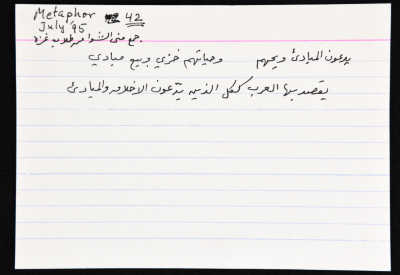 Metaphor 42
July '95
جمع منى الشوا من طلاب غزة
يدعون المبادئ ويحهم وحياتهم خزي وبيع مبادي
يقصد بها العرب ككل الذين يدّعون الاخلاق والمبادئ